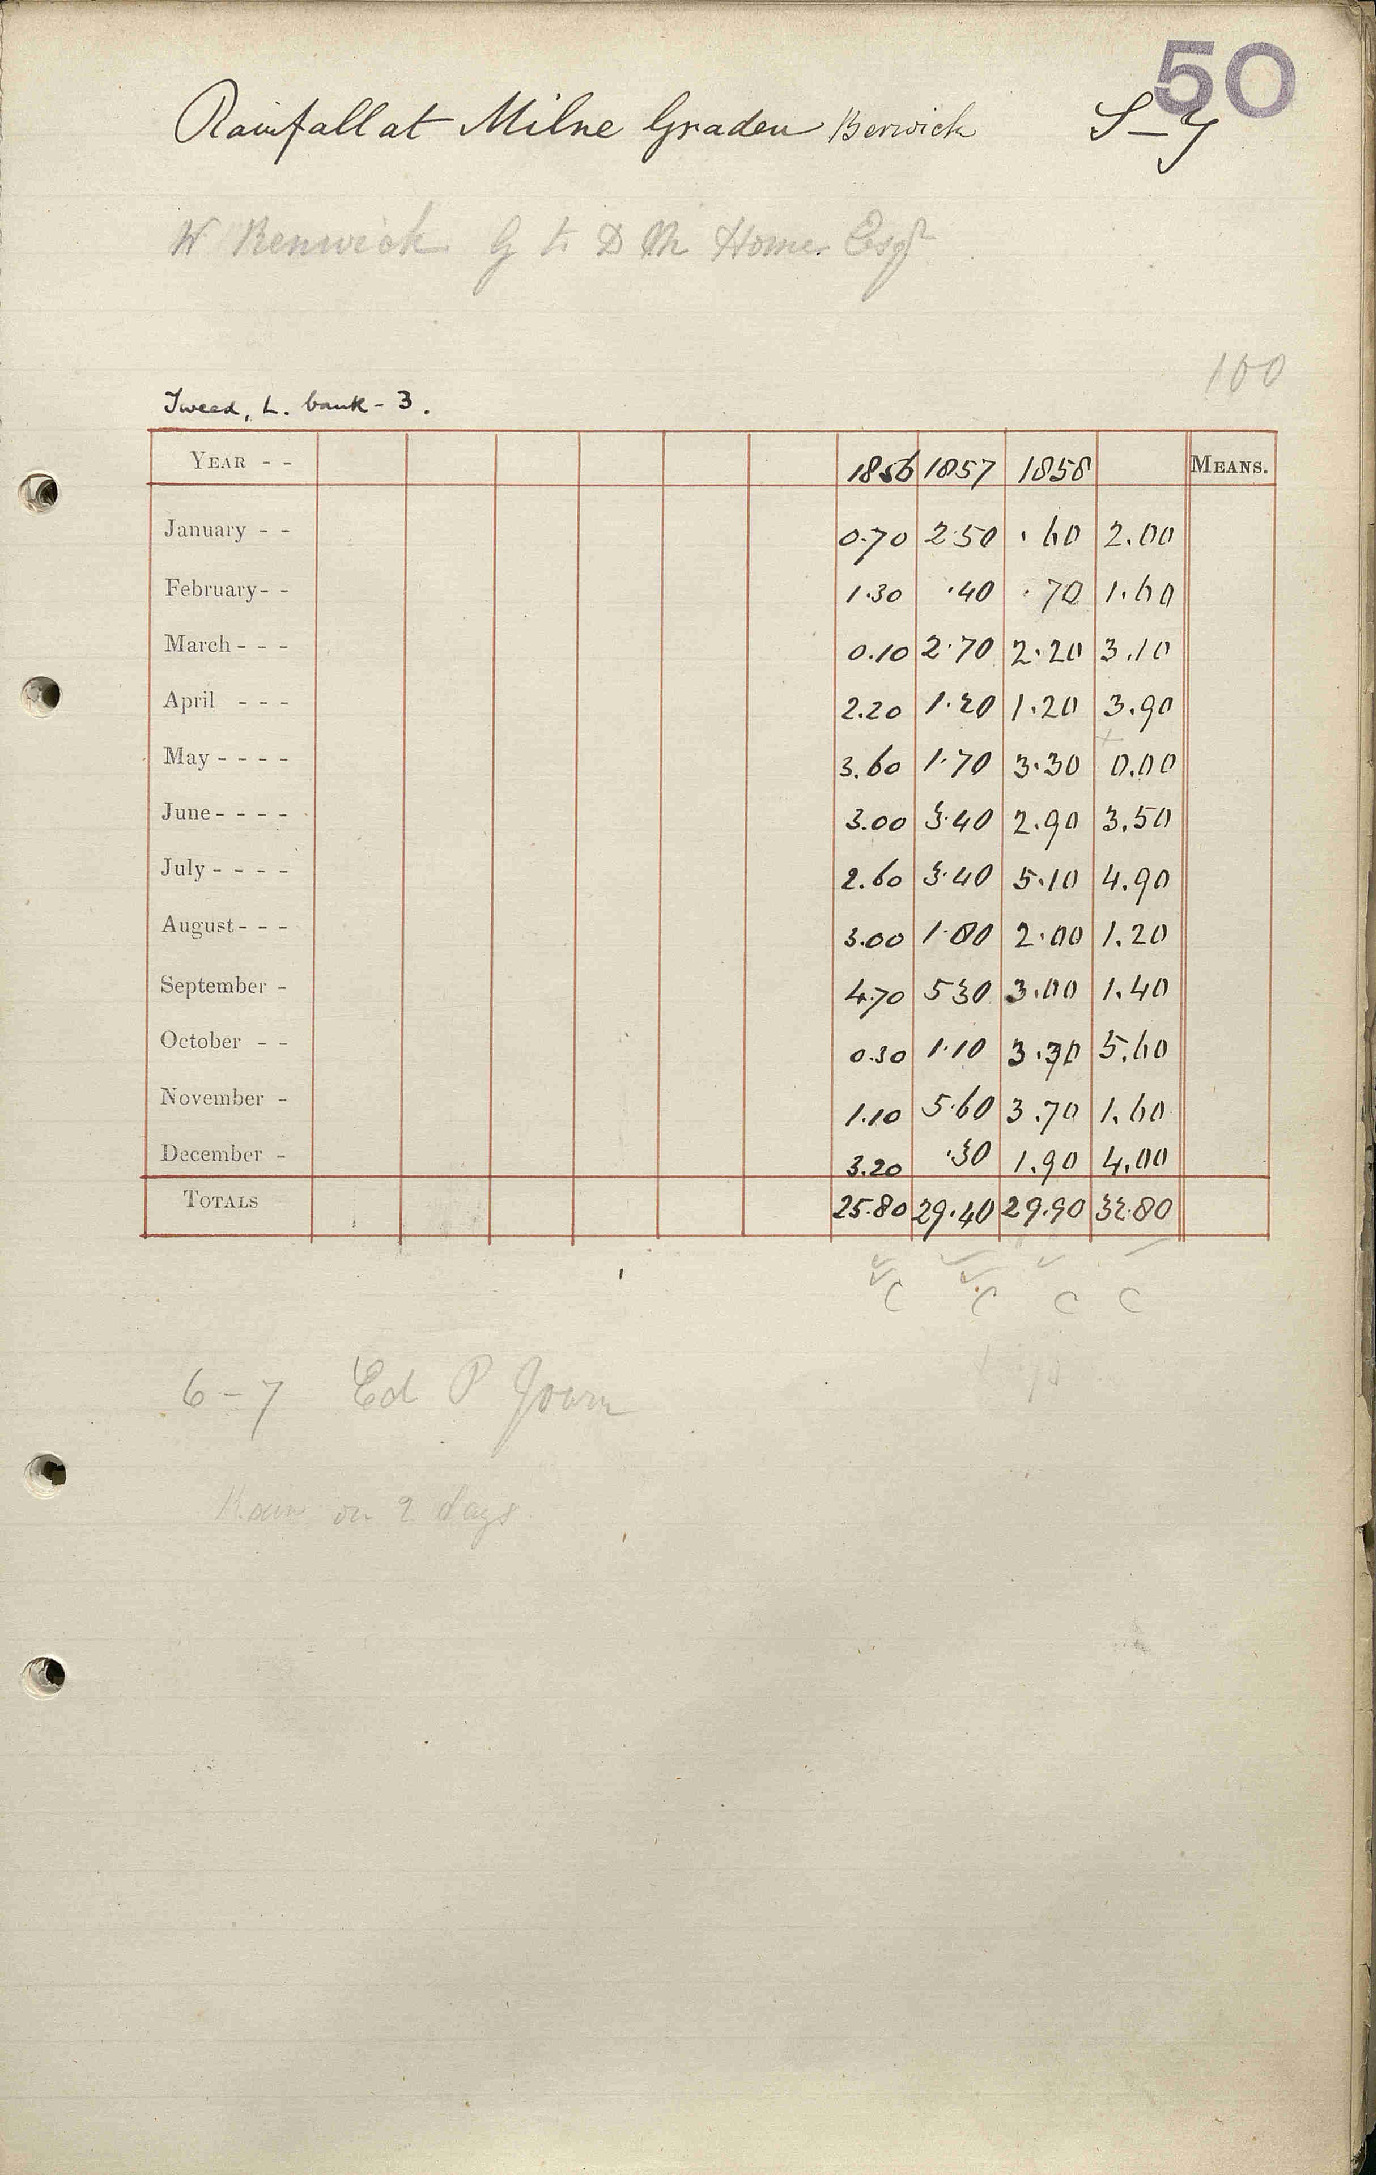 50
Rainfall at Milne Graden Berwick S-y
W Renwick G to D M Home Esqr
100
Tweed, L. bank - 3.
YEAR - - 1856 1857 1858 MEANS.
January - - 0.70 2.50 .60 2.00
February - - 1.30 .40 .70 1.60
March - - - 0.10 2.70 2.20 3.10
April - - - 2.20 1.20 1.20 3.90
May - - - - 3.60 1.70 3.30 0.00
June - - - - 3.00 3.40 2.90 3.50
July - - - - 2.60 3.40 5.10 4.90
August - - - 3.00 1.80 2.00 1.20
September - 4.70 5.30 3.00 1.40
October - - 0.30 1.10 3.30 5.60
November - 1.10 5.60 3.70 1.60
December - 3.20 .30 1.90 4.00
TOTALS 25.80 29.40 29.90 32.80
C C C C
6-7 Ed P Journ
Rain on 2 days